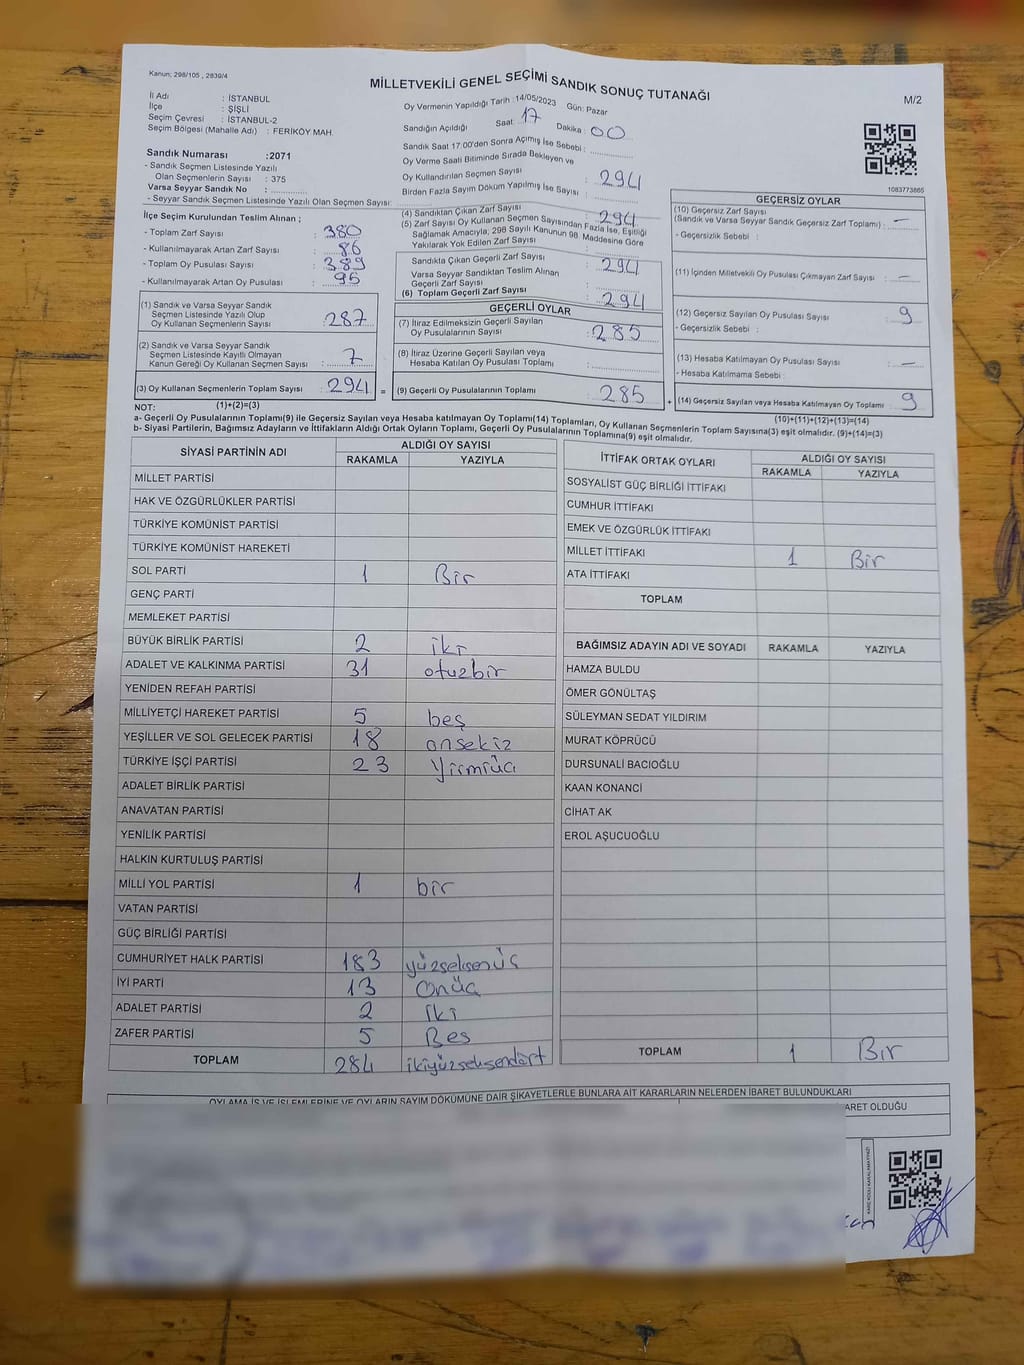 Kanun; 298/105 , 2839/4
MİLLETVEKİLİ GENEL SEÇİMİ SANDIK SONUÇ TUTANAĞI
M/2
İl Adı : İSTANBUL
İlçe : ŞİŞLİ
Seçim Çevresi : İSTANBUL-2
Seçim Bölgesi (Mahalle Adı) : FERİKÖY MAH.
Oy Vermenin Yapıldığı Tarih :14/05/2023 Gün: Pazar
Sandığın Açıldığı Saat: 17 Dakika : 00
Sandık Saat 17:00'den Sonra Açımış İse Sebebi :
Oy Verme Saati Bitiminde Sırada Bekleyen ve
Oy Kullandırılan Seçmen Sayısı : 294
Birden Fazla Sayım Döküm Yapılmış İse Sayısı :
Sandık Numarası :2071
- Sandık Seçmen Listesinde Yazılı
Olan Seçmenlerin Sayısı : 375
Varsa Seyyar Sandık No :
- Seyyar Sandık Seçmen Listesinde Yazılı Olan Seçmen Sayısı:
1083773865
İlçe Seçim Kurulundan Teslim Alınan ;
- Toplam Zarf Sayısı : 380
- Kullanılmayarak Artan Zarf Sayısı : 86
- Toplam Oy Pusulası Sayısı : 389
- Kullanılmayarak Artan Oy Pusulası : 95
(1) Sandık ve Varsa Seyyar Sandık
Seçmen Listesinde Yazılı Olup
Oy Kullanan Seçmenlerin Sayısı :287
(2) Sandık ve Varsa Seyyar Sandık
Seçmen Listesinde Kayıtlı Olmayan
Kanun Gereği Oy Kullanan Seçmen Sayısı : 7
(3) Oy Kullanan Seçmenlerin Toplam Sayısı : 294 =
(4) Sandıktan Çıkan Zarf Sayısı : 294
(5) Zarf Sayısı Oy Kullanan Seçmen Sayısından Fazla İse, Eşitliği
Sağlamak Amacıyla; 298 Sayılı Kanunun 98. Maddesine Göre
Yakılarak Yok Edilen Zarf Sayısı :
Sandıkta Çıkan Geçerli Zarf Sayısı : 294
Varsa Seyyar Sandıktan Teslim Alınan
Geçerli Zarf Sayısı :
(6) Toplam Geçerli Zarf Sayısı : 294
GEÇERLİ OYLAR
(7) İtiraz Edilmeksizin Geçerli Sayılan
Oy Pusulalarının Sayısı : 285
(8) İtiraz Üzerine Geçerli Sayılan veya
Hesaba Katılan Oy Pusulası Toplamı :
(9) Geçerli Oy Pusulalarının Toplamı : 285 +
GEÇERSİZ OYLAR
(10) Geçersiz Zarf Sayısı
(Sandık ve Varsa Seyyar Sandık Geçersiz Zarf Toplamı) : —
- Geçersizlik Sebebi :
(11) İçinden Milletvekili Oy Pusulası Çıkmayan Zarf Sayısı : —
(12) Geçersiz Sayılan Oy Pusulası Sayısı : 9
- Geçersizlik Sebebi :
(13) Hesaba Katılmayan Oy Pusulası Sayısı : —
- Hesaba Katılmama Sebebi :
(14) Geçersiz Sayılan veya Hesaba Katılmayan Oy Toplamı : 9
NOT: (1)+(2)=(3) (10)+(11)+(12)+(13)=(14)
a- Geçerli Oy Pusulalarının Toplamı(9) ile Geçersiz Sayılan veya Hesaba katılmayan Oy Toplamı(14) Toplamları, Oy Kullanan Seçmenlerin Toplam Sayısına(3) eşit olmalıdır. (9)+(14)=(3)
b- Siyasi Partilerin, Bağımsız Adayların ve İttifakların Aldığı Ortak Oyların Toplamı, Geçerli Oy Pusulalarının Toplamına(9) eşit olmalıdır.
SİYASİ PARTİNİN ADI ALDIĞI OY SAYISI
RAKAMLA YAZIYLA
MİLLET PARTİSİ
HAK VE ÖZGÜRLÜKLER PARTİSİ
TÜRKİYE KOMÜNİST PARTİSİ
TÜRKİYE KOMÜNİST HAREKETİ
SOL PARTİ 1 Bir
GENÇ PARTİ
MEMLEKET PARTİSİ
BÜYÜK BİRLİK PARTİSİ 2 iki
ADALET VE KALKINMA PARTİSİ 31 otuzbir
YENİDEN REFAH PARTİSİ
MİLLİYETÇİ HAREKET PARTİSİ 5 beş
YEŞİLLER VE SOL GELECEK PARTİSİ 18 onsekiz
TÜRKİYE İŞÇİ PARTİSİ 23 Yirmiüç
ADALET BİRLİK PARTİSİ
ANAVATAN PARTİSİ
YENİLİK PARTİSİ
HALKIN KURTULUŞ PARTİSİ
MİLLİ YOL PARTİSİ 1 bir
VATAN PARTİSİ
GÜÇ BİRLİĞİ PARTİSİ
CUMHURİYET HALK PARTİSİ 183 yüzseksenüç
İYİ PARTİ 13 Onüç
ADALET PARTİSİ 2 İki
ZAFER PARTİSİ 5 Beş
TOPLAM 284 ikiyüzseksendört
İTTİFAK ORTAK OYLARI ALDIĞI OY SAYISI
RAKAMLA YAZIYLA
SOSYALİST GÜÇ BİRLİĞİ İTTİFAKI
CUMHUR İTTİFAKI
EMEK VE ÖZGÜRLÜK İTTİFAKI
MİLLET İTTİFAKI 1 Bir
ATA İTTİFAKI
TOPLAM
BAĞIMSIZ ADAYIN ADI VE SOYADI RAKAMLA YAZIYLA
HAMZA BULDU
ÖMER GÖNÜLTAŞ
SÜLEYMAN SEDAT YILDIRIM
MURAT KÖPRÜCÜ
DURSUNALİ BACIOĞLU
KAAN KONANCİ
CİHAT AK
EROL AŞUCUOĞLU
TOPLAM 1 Bir
OYLAMA İŞ VE İŞLEMLERİNE VE OYLARIN SAYIM DÖKÜMÜNE DAİR ŞİKAYETLERLE BUNLARA AİT KARARLARIN NELERDEN İBARET BULUNDUKLARI
ARET OLDUĞU